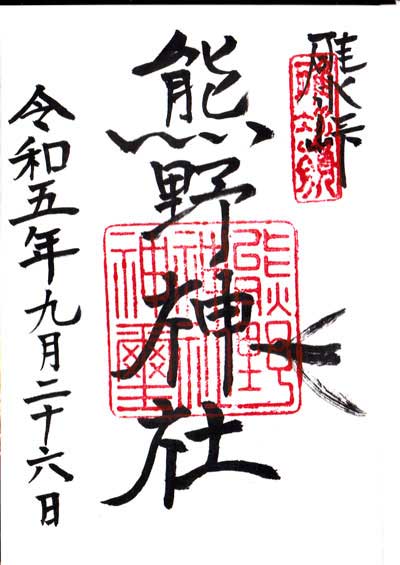 碓氷峠
熊野神社
熊野
神社
神璽
令和五年九月二十六日